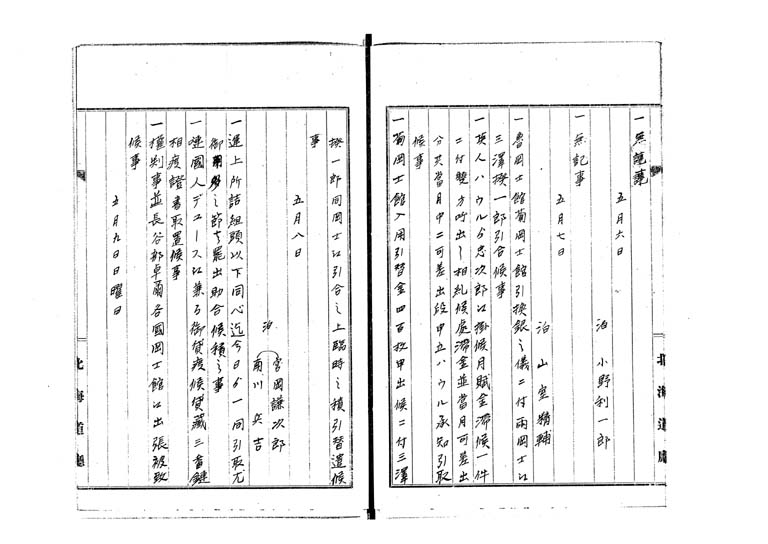 一無記事
五月六日
泊 小野利一郎
一無記事
五月七日
泊 山室精輔
一魯岡士館葡岡士館引換銀之儀ニ付両岡士江
三澤揆一郎引合候事
一英人ハウルゟ忠次郎江掛候月賦金滞候一件
ニ付雙方呼出し相糺候處滞金並當月可差出
分共當月中ニ可差出段申立ハウル承知引取
候事
一葡岡士館入用引替金四百枚申出候ニ付三澤
揆一郎同岡士江引合之上臨時之積引替遣候
事
五月八日
泊 宮岡謙次郎
雨川兵吉
一運上所詰組頭以下同心迄今日ゟ一同引取尤
御用多之節者罷出助合候積之事
一嗹國人デュース江兼而御貸渡候貸藏三番鍵
相渡證書取置候事
一權判事並長谷部卓爾各國岡士館江出張被致
候事
五月九日日曜日
北海道廳
北海道廳